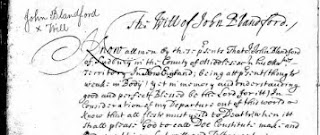 John Blandford
& Will
The Will of John Blandford,
Know all men by these psents That I John Blandford
of Sudbury in the County of Middlesex in his Majties
Territory in New England; being att psent, though
weake in Body; yet in memory and understanding
good and perfect Blessed be the Lord for itt In
Consideration of my Departure out of this world &
know that all flesh must yeld to Death when itt
shall please God to call Doe Constitute make and